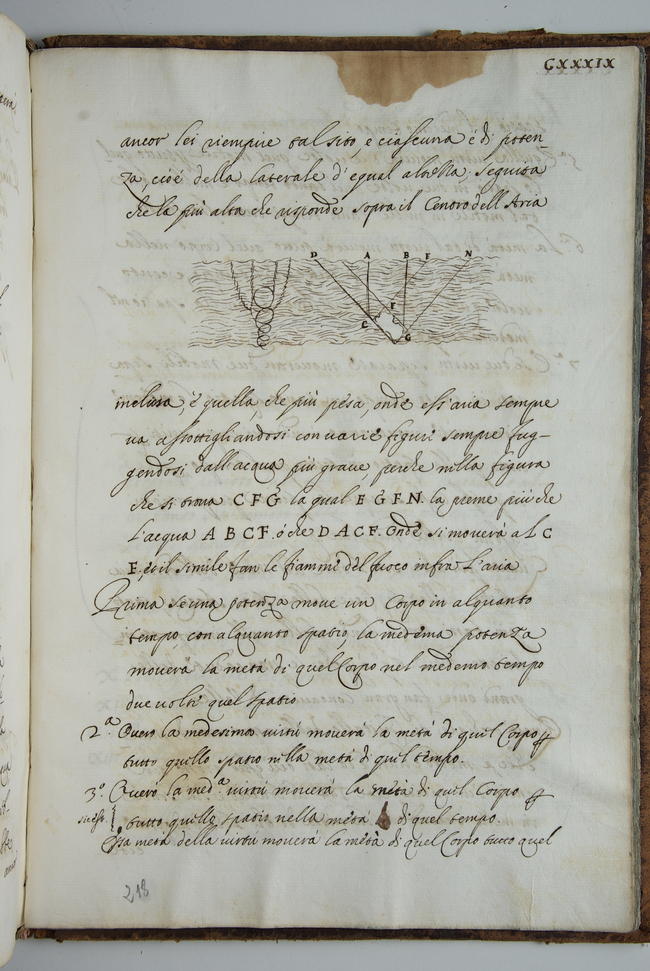 CXXXIX
ancor lei riempire tal sito, e ciascuna é di poten-
za, cioé della laterale d'egual altezza. seguita
che la più alta che risponde sopra il Centro dell'Aria
D A B F N
E
C
G
inclusa, è quella, che più pesa, onde ess'aria sempre
va assottigliandosi con varie figure sempre fug-
gendosi dall'acqua più grave, perche nella figura
che si trova C F G la qual E G F N. la preme più che
l'acqua A B C F. ó che D A C F. Onde si moverà al C
E. et il simile fan le fiamme del fuoco infra l'aria
Prima se una potenza move un Corpo in alquanto
tempo, con alquanto spatio, la medema potenza
moverà la metà di quel Corpo nel medemo tempo
due volte quel spatio
2ª. Overo la medesima virtù moverà la metà di quel Corpo p
tutto quello spatio nella metà di quel tempo.
3º. Overo la med.ª virtù moverà la metà di quel Corpo p
tutto quello spatio nella metà di quel tempo.
la metà della virtù moverà la metà di quel Corpo tutto quel
218